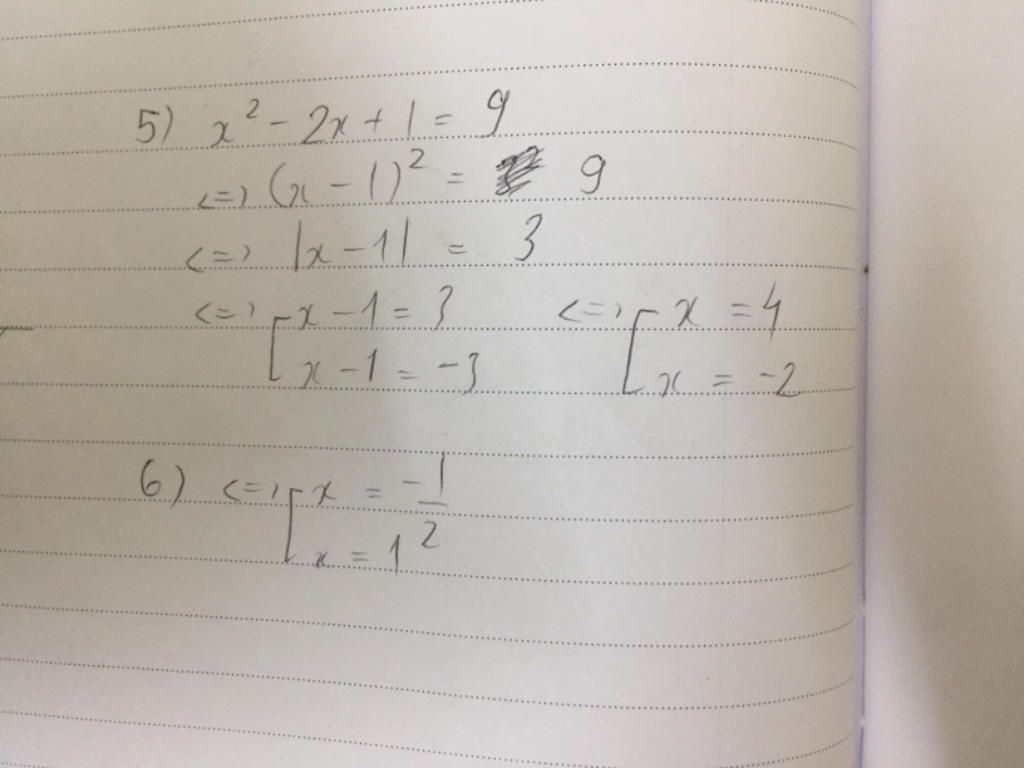 5) x² - 2x + 1 = 9
<=> (x - 1)² = 9
<=> |x - 1| = 3
<=> [ x - 1 = 3 <=> [ x = 4
x - 1 = -3 x = -2
6) <=> [ x = -1/2
x = 1